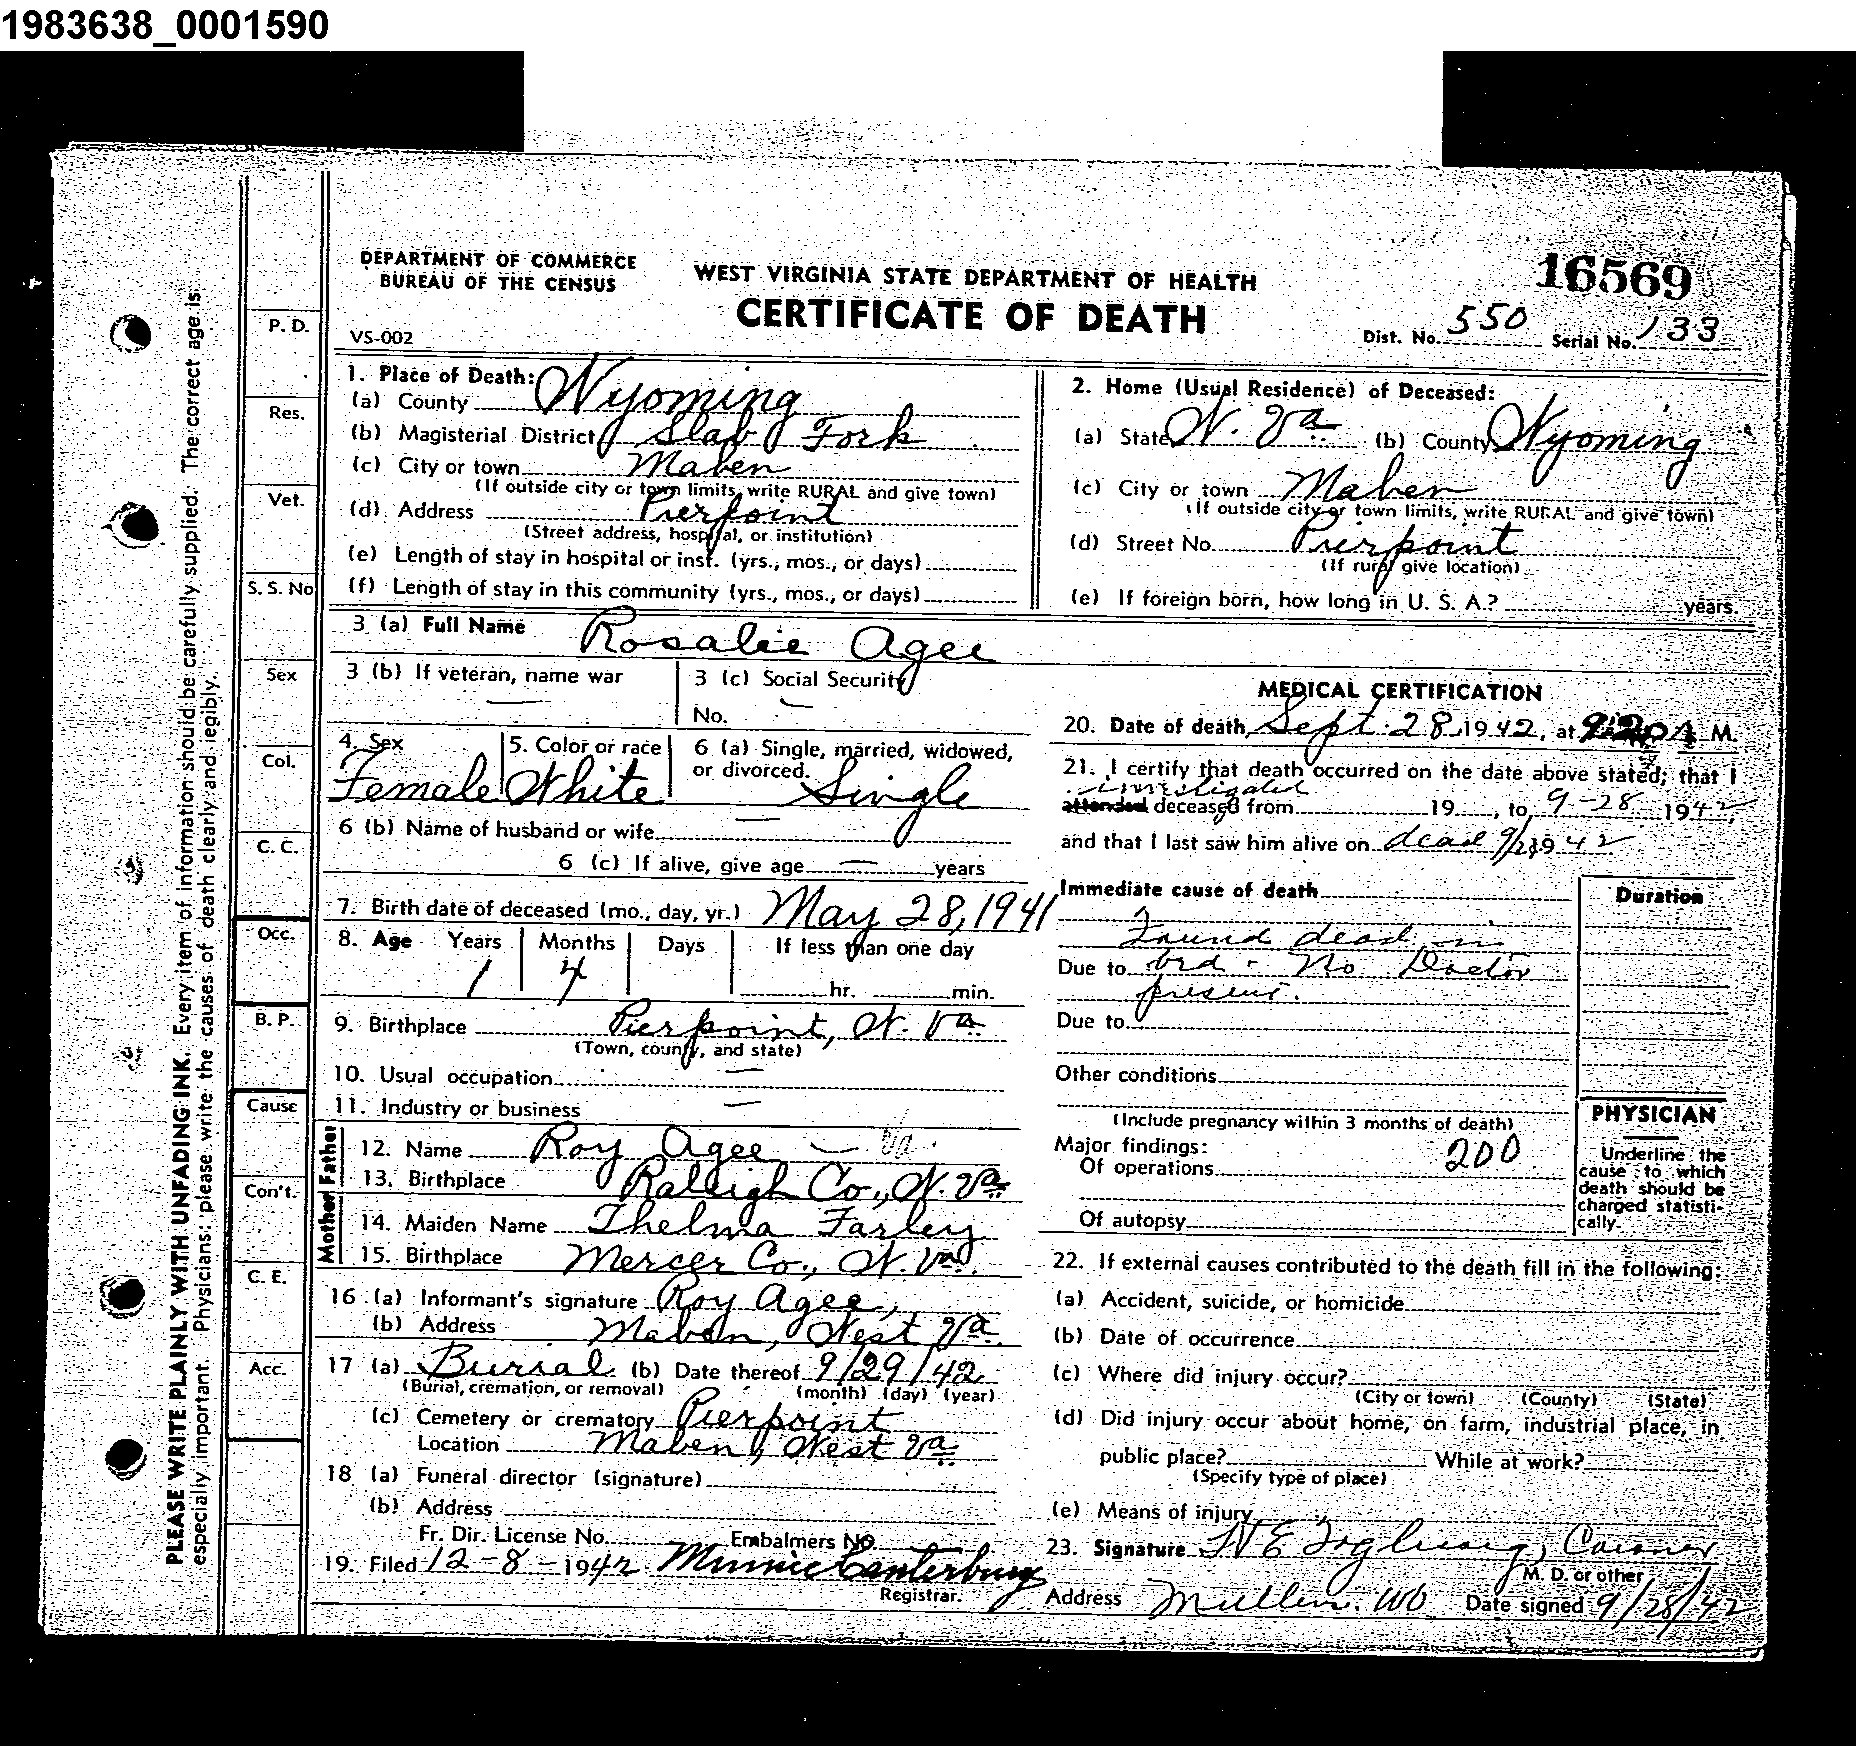 1983638_0001590
DEPARTMENT OF COMMERCE
BUREAU OF THE CENSUS
WEST VIRGINIA STATE DEPARTMENT OF HEALTH
CERTIFICATE OF DEATH
16569
VS-002
Dist. No. 550 Serial No. 133
1. Place of Death:
(a) County Wyoming
(b) Magisterial District Slab Fork
(c) City or town Maben
(If outside city or town limits, write RURAL and give town)
(d) Address Pierpoint
(Street address, hospital, or institution)
(e) Length of stay in hospital or inst. (yrs., mos., or days)
(f) Length of stay in this community (yrs., mos., or days)
2. Home (Usual Residence) of Deceased:
(a) State W. Va (b) County Wyoming
(c) City or town Maben
(If outside city or town limits, write RURAL and give town)
(d) Street No. Pierpoint
(If rural give location)
(e) If foreign born, how long in U. S. A.? years.
3 (a) Full Name Rosalie Agee
3 (b) If veteran, name war —
3 (c) Social Security
No. —
4. Sex Female
5. Color or race White
6 (a) Single, married, widowed,
or divorced. Single
6 (b) Name of husband or wife —
6 (c) If alive, give age — years
7. Birth date of deceased (mo., day, yr.) May 28, 1941
8. Age Years Months Days If less than one day
1 4
hr. min.
9. Birthplace Pierpoint, W. Va
(Town, county, and state)
10. Usual occupation —
11. Industry or business —
Father
12. Name Roy Agee — Va.
13. Birthplace Raleigh Co., W. Va
Mother
14. Maiden Name Thelma Farley
15. Birthplace Mercer Co., W. Va.
16 (a) Informant's signature Roy Agee,
(b) Address Maben, West Va.
17 (a) Burial (b) Date thereof 9/29/42
(Burial, cremation, or removal) (month) (day) (year)
(c) Cemetery or crematory Pierpoint
Location Maben, West Va
18 (a) Funeral director (signature)
(b) Address
Fr. Dir. License No. Embalmers No.
19. Filed 12-8-1942 Minnie Canterbury
Registrar.
MEDICAL CERTIFICATION
20. Date of death, Sept. 28, 1942, at A M.
21. I certify that death occurred on the date above stated; that I
investigated
attended deceased from 19 , to 9-28 1942,
and that I last saw him alive on dead 9/28 1942
Immediate cause of death
Found dead in
Due to bed - No Doctor
present.
Due to
Other conditions
(Include pregnancy within 3 months of death)
Major findings:
Of operations 200
Of autopsy
Duration
PHYSICIAN
Underline the
cause to which
death should be
charged statisti-
cally.
22. If external causes contributed to the death fill in the following:
(a) Accident, suicide, or homicide
(b) Date of occurrence
(c) Where did injury occur?
(City or town) (County) (State)
(d) Did injury occur about home, on farm, industrial place, in
public place? While at work?
(Specify type of place)
(e) Means of injury
23. Signature W E Coroner
M. D. or other
Address Mullens. WV Date signed 9/28/42
P. D.
Res.
Vet.
S. S. No
Sex
Col.
C. C.
Occ.
B. P.
Cause
Con't.
C. E.
Acc.
PLEASE WRITE PLAINLY WITH UNFADING INK. Every item of information should be carefully supplied. The correct age is
especially important. Physicians: please write the causes of death clearly and legibly.